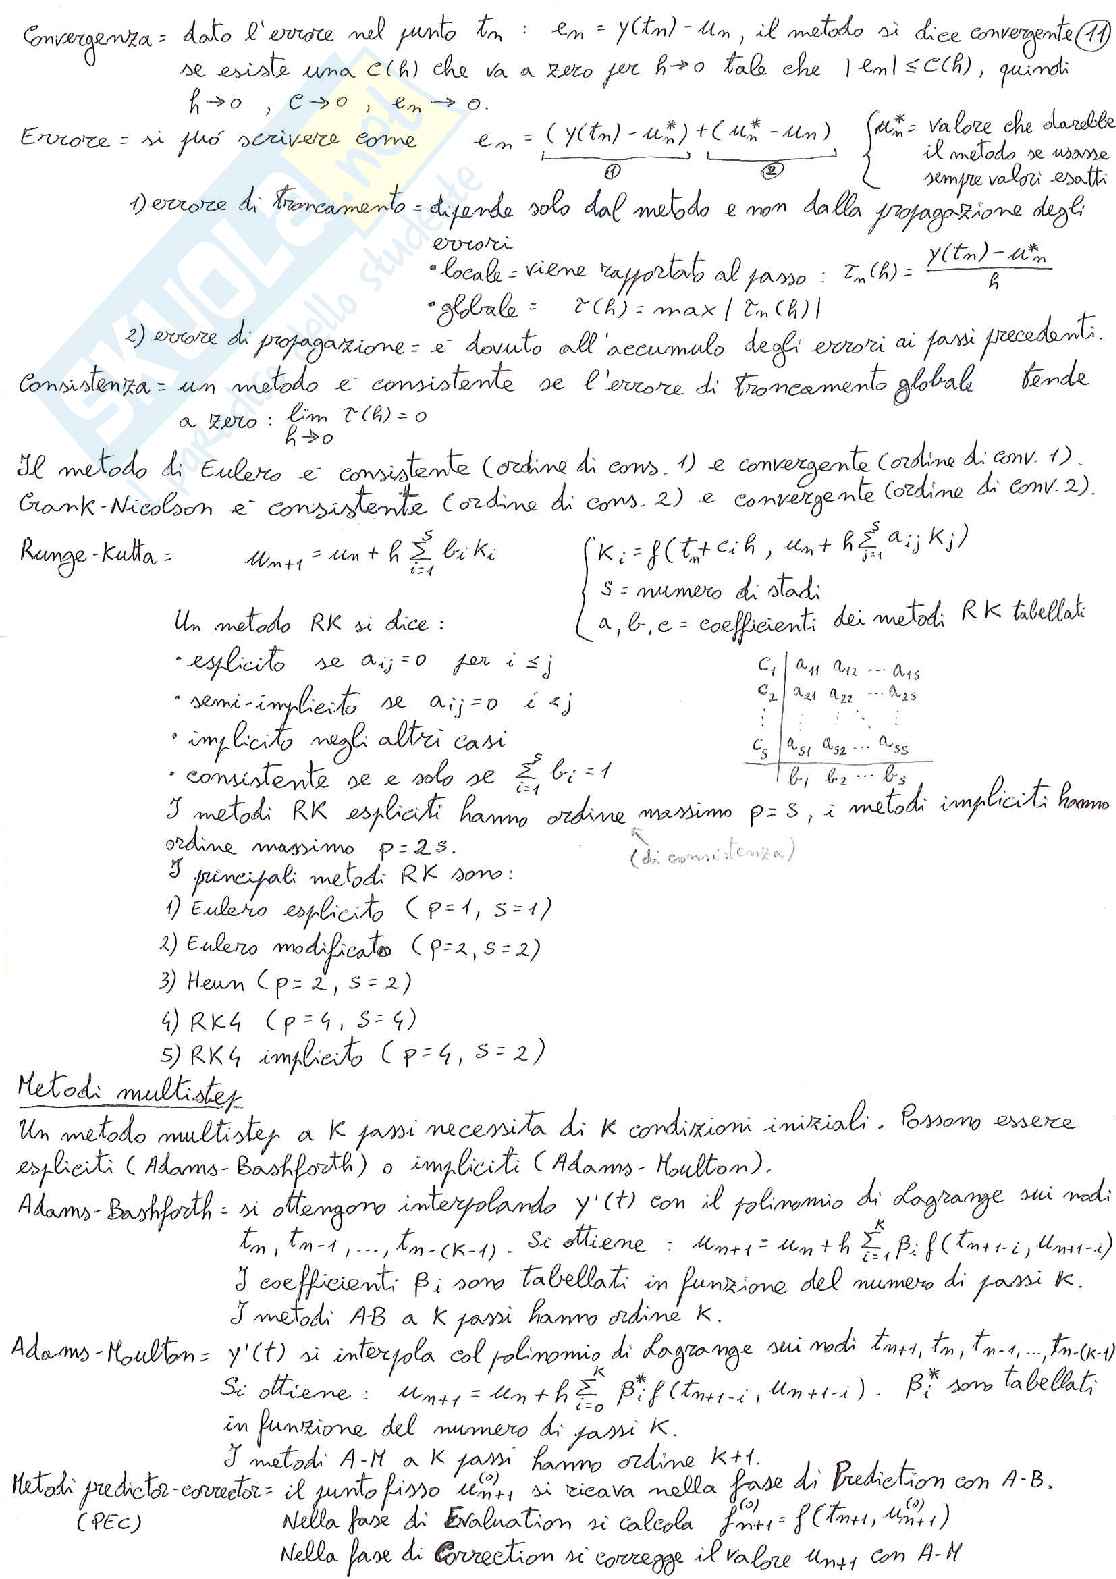 Convergenza = dato l'errore nel punto tn : en = y(tn) - un, il metodo si dice convergente (11)
se esiste una C(h) che va a zero per h→0 tale che |en| ≤ C(h), quindi
h→0 , C→0 , en→0.
Errore = si può scrivere come en = (y(tn) - un*) + (un* - un) { un* = valore che darebbe
① ② il metodo se usasse
sempre valori esatti
1) errore di troncamento = dipende solo dal metodo e non dalla propagazione degli
errori
• locale = viene rapportato al passo : τn(h) = (y(tn) - un*)/h
• globale = τ(h) = max |τn(h)|
2) errore di propagazione = è dovuto all'accumulo degli errori ai passi precedenti.
Consistenza = un metodo è consistente se l'errore di troncamento globale tende
a zero : lim h→0 τ(h) = 0
Il metodo di Eulero è consistente (ordine di cons. 1) e convergente (ordine di conv. 1).
Crank-Nicolson è consistente (ordine di cons. 2) e convergente (ordine di conv. 2).
Runge-Kutta = un+1 = un + h Σ i=1 s bi Ki { Ki = f(tn + ci h , un + h Σ j=1 s aij Kj)
s = numero di stadi
Un metodo RK si dice : a, b, c = coefficienti dei metodi RK tabellati
• esplicito se aij = 0 per i ≤ j c1 | a11 a12 ... a1s
• semi-implicito se aij = 0 i < j c2 | a21 a22 ... a2s
• implicito negli altri casi cs | as1 as2 ... ass
• consistente se e solo se Σ i=1 s bi = 1 | b1 b2 ... bs
I metodi RK espliciti hanno ordine massimo p = s, i metodi impliciti hanno
ordine massimo p = 2s. (di consistenza)
I principali metodi RK sono :
1) Eulero esplicito (p=1, s=1)
2) Eulero modificato (p=2, s=2)
3) Heun (p=2, s=2)
4) RK4 (p=4, s=4)
5) RK4 implicito (p=4, s=2)
Metodi multistep
Un metodo multistep a K passi necessita di K condizioni iniziali. Possono essere
espliciti (Adams-Bashforth) o impliciti (Adams-Moulton).
Adams-Bashforth = si ottengono interpolando y'(t) con il polinomio di Lagrange sui nodi
tn, tn-1, ..., tn-(K-1). Si ottiene : un+1 = un + h Σ i=1 K βi f(tn+1-i, un+1-i)
I coefficienti βi sono tabellati in funzione del numero di passi K.
I metodi AB a K passi hanno ordine K.
Adams-Moulton = y'(t) si interpola col polinomio di Lagrange sui nodi tn+1, tn, tn-1, ..., tn-(K-1)
Si ottiene : un+1 = un + h Σ i=0 K βi* f(tn+1-i, un+1-i). βi* sono tabellati
in funzione del numero di passi K.
I metodi A-M a K passi hanno ordine K+1.
Metodi predictor-corrector = il punto fisso un+1(0) si ricava nella fase di Prediction con A-B.
(PEC) Nella fase di Evaluation si calcola fn+1(0) = f(tn+1, un+1(0))
Nella fase di Correction si corregge il valore un+1 con A-M